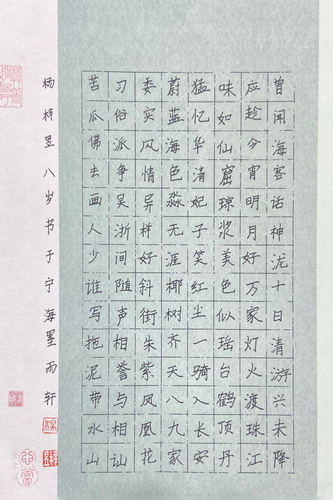 曾闻海客话神泷十日清游兴未降
应趁今宵明月好万家灯火渡珠江
味如仙窟琼浆美色似瑶台鹤顶丹
猛忆华清妃子笑红尘一骑入长安
蔚蓝海色淼无涯椰树齐天八九家
委实风情异样好斜街朱紫凤凰花
习俗派争吴浙间随声相誉与相讪
苦瓜佛去画人少谁写拖泥带水山
杨梓昱八岁书于宁海墨雨轩